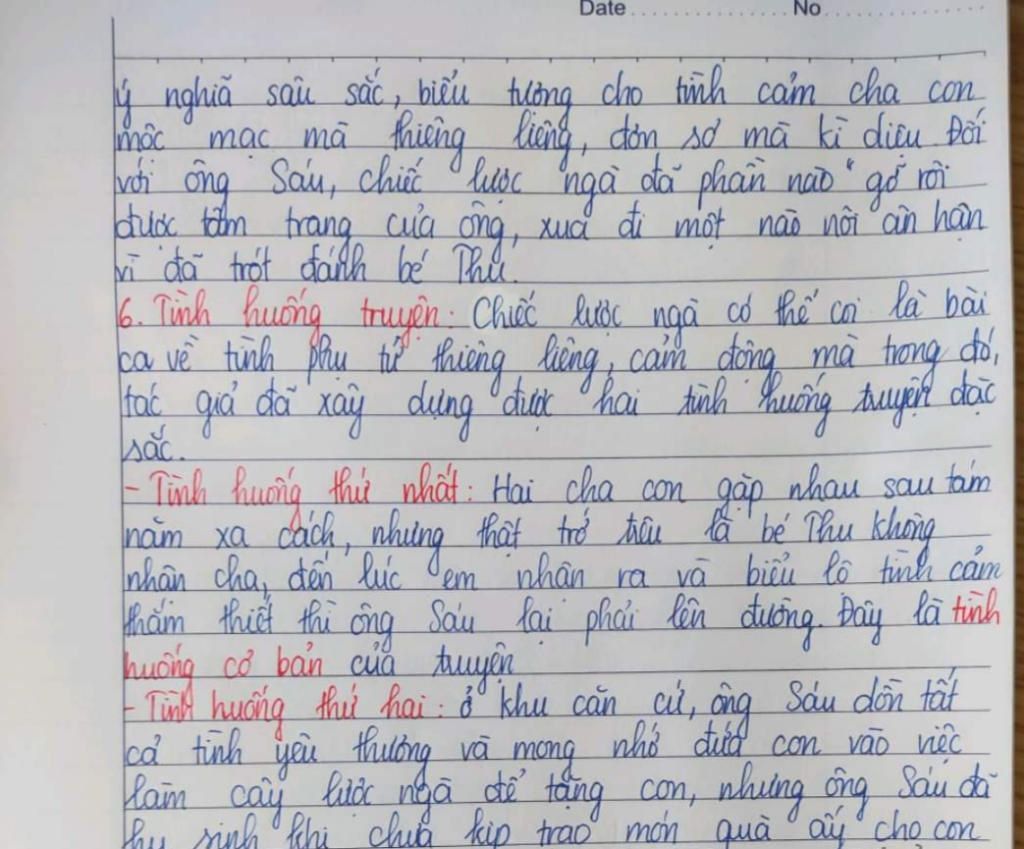 Date No
ý nghĩa sâu sắc, biểu tượng cho tình cảm cha con
mộc mạc mà thiêng liêng, đơn sơ mà kì diệu. Đối
với ông Sáu, chiếc lược ngà đã phần nào "gỡ rối
được tâm trạng của ông, xua đi một nào nỗi ân hận
vì đã trót đánh bé Thu.
6. Tình huống truyện: Chiếc lược ngà có thể coi là bài
ca về tình phụ tử thiêng liêng, cảm động mà trong đó,
tác giả đã xây dựng được hai tình huống truyện đặc
sắc.
- Tình huống thứ nhất: Hai cha con gặp nhau sau tám
năm xa cách, nhưng thật trớ trêu là bé Thu không
nhận cha, đến lúc em nhận ra và biểu lộ tình cảm
thắm thiết thì ông Sáu lại phải lên đường. Đây là tình
huống cơ bản của truyện
- Tình huống thứ hai: ở khu căn cứ, ông Sáu dồn tất
cả tình yêu thương và mong nhớ đứa con vào việc
làm cây lược ngà để tặng con, nhưng ông Sáu đã
hy sinh khi chưa kịp trao món quà ấy cho con